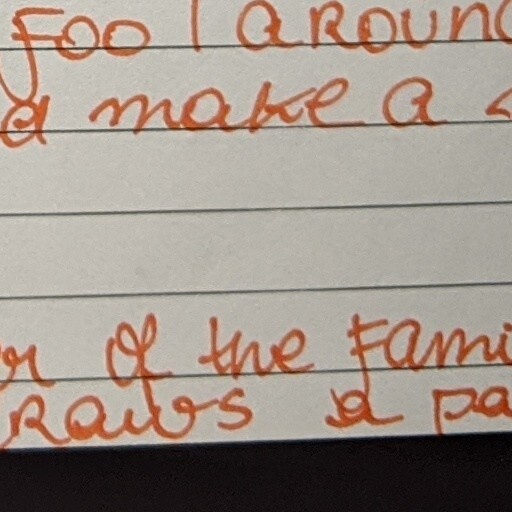 Fool around
d make a
r of the Fami
Raws a pa